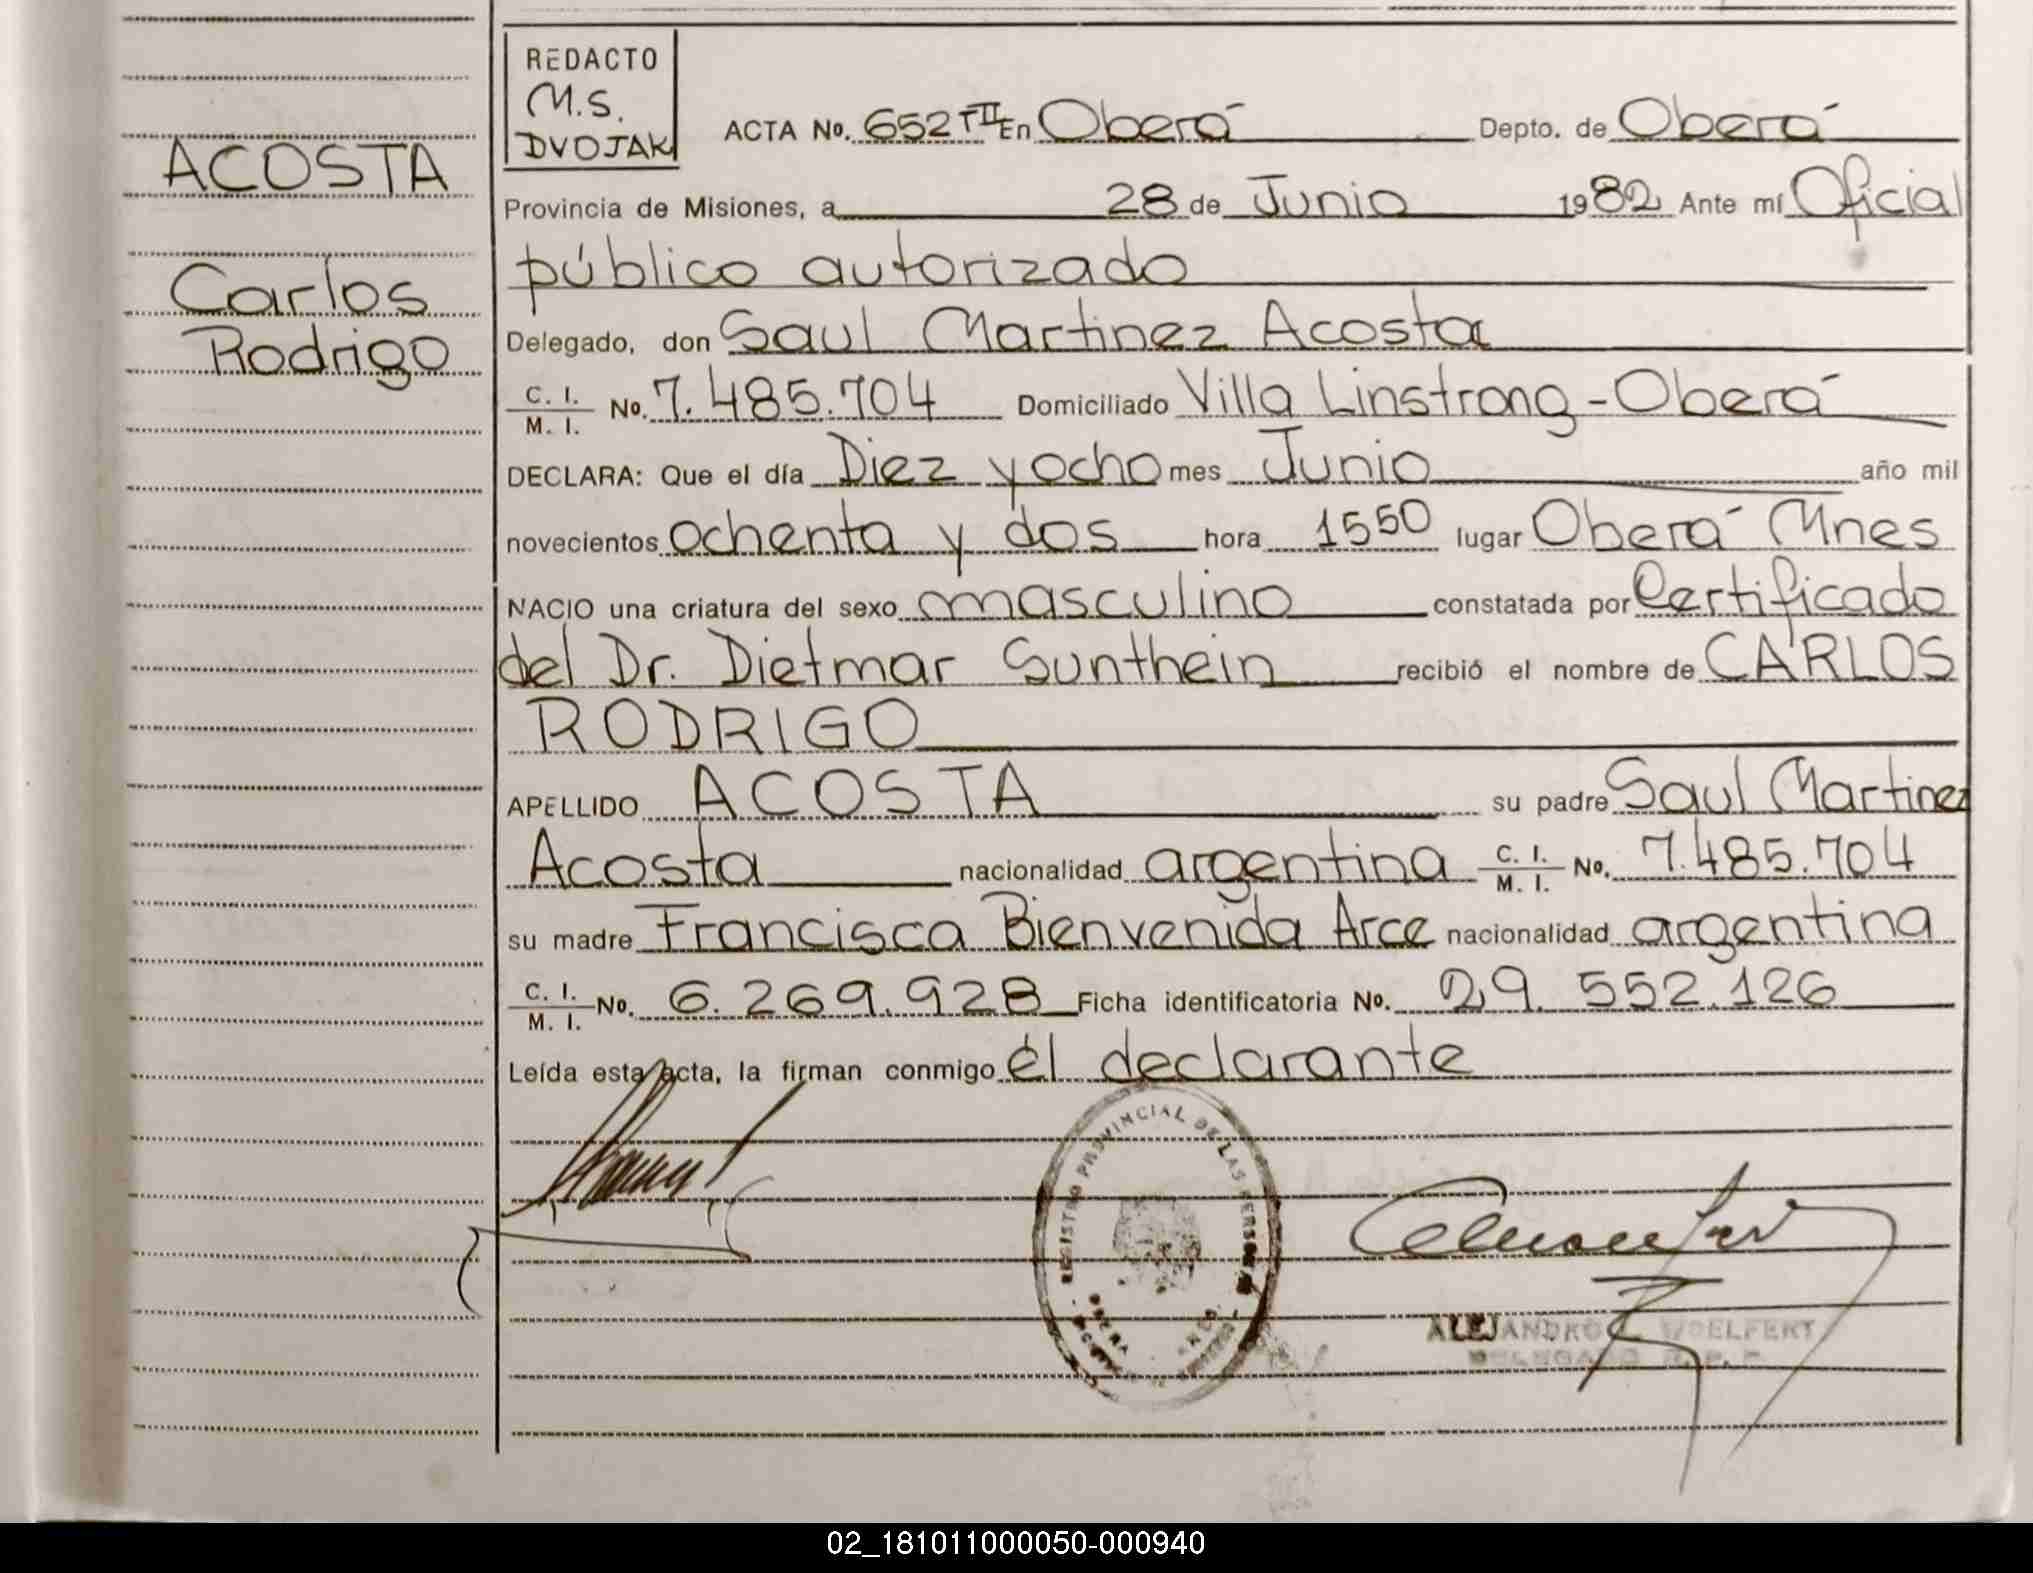 ACOSTA
Carlos
Rodrigo
REDACTO
M.S.
DVOJAK
ACTA No. 652 TII En Oberá Depto. de Oberá
Provincia de Misiones, a 28 de Junio 1982 Ante mí Oficial
público autorizado
Delegado, don Saul Martinez Acosta
C. I. / M. I. No. 7.485.704 Domiciliado Villa Linstrong - Oberá
DECLARA: Que el día Diez y ocho mes Junio año mil
novecientos ochenta y dos hora 1550 lugar Oberá Mnes
NACIO una criatura del sexo masculino constatada por Certificado
del Dr. Dietmar Sunthein recibió el nombre de CARLOS
RODRIGO
APELLIDO ACOSTA su padre Saul Martinez
Acosta nacionalidad argentina C. I. / M. I. No. 7.485.704
su madre Francisca Bienvenida Arce nacionalidad argentina
C. I. / M. I. No. 6.269.928 Ficha identificatoria No. 29.552.126
Leída esta acta, la firman conmigo él declarante
REGISTRO PROVINCIAL DE LAS PERSONAS
OBERA
ALEJANDRO WOELFERT
DELEGADO R. P. P.
02_181011000050-000940